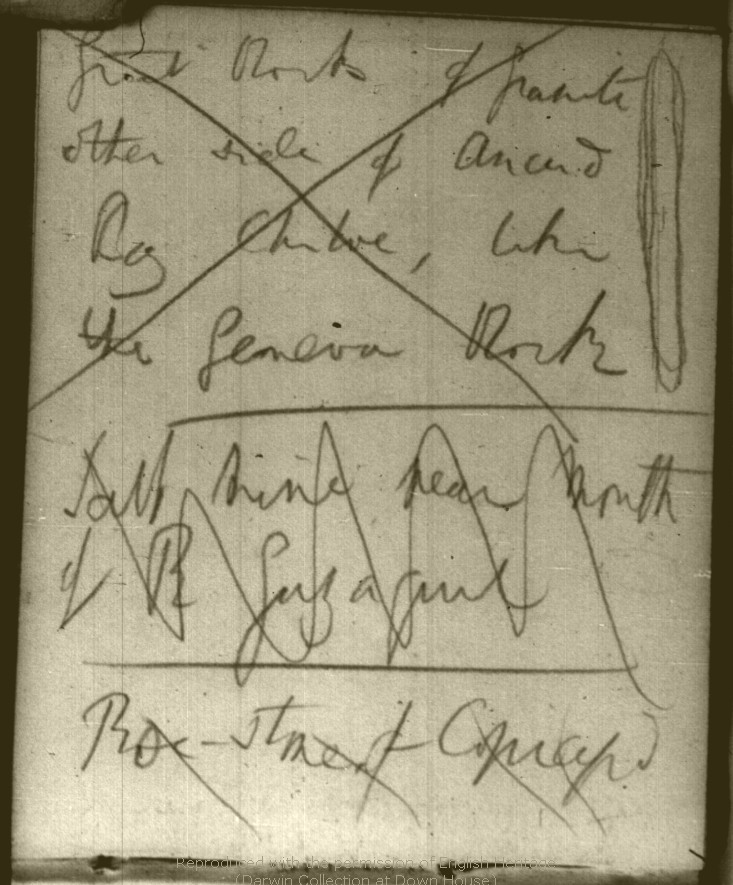 Great Rocks of Granite
other side of Ancud
Bay Chiloe, like
the Geneva Rocks
Salt mine near mouth
of R Guyaquil
- stone of Copiapò
Reproduced with the permission of English Heritage
(Darwin Collection at Down House)